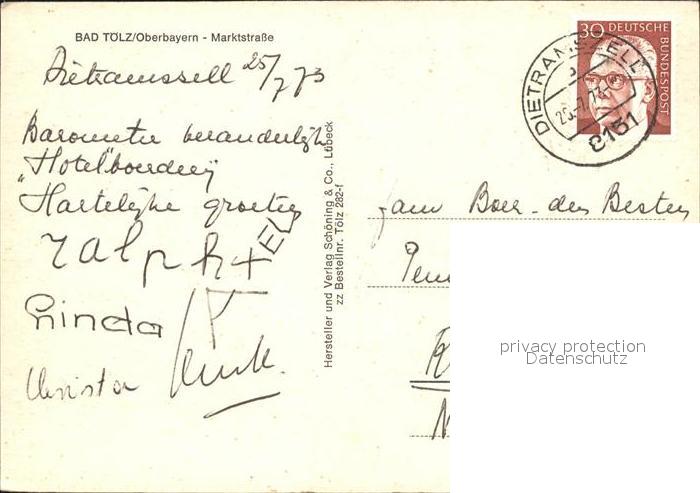 BAD TÖLZ/Oberbayern - Marktstraße
Dietramszell 25/7 73
Barometer veranderlijk
"Hotel" boerderij
Hartelijke groeten
Ralph +
Linda
Christa
Hersteller und Verlag Schöning & Co., Lübeck
zz Bestellnr. Tölz 282-f
30 DEUTSCHE
BUNDESPOST
DIETRAMSZELL
8151
fam Boer-den Besten
privacy protection
Datenschutz